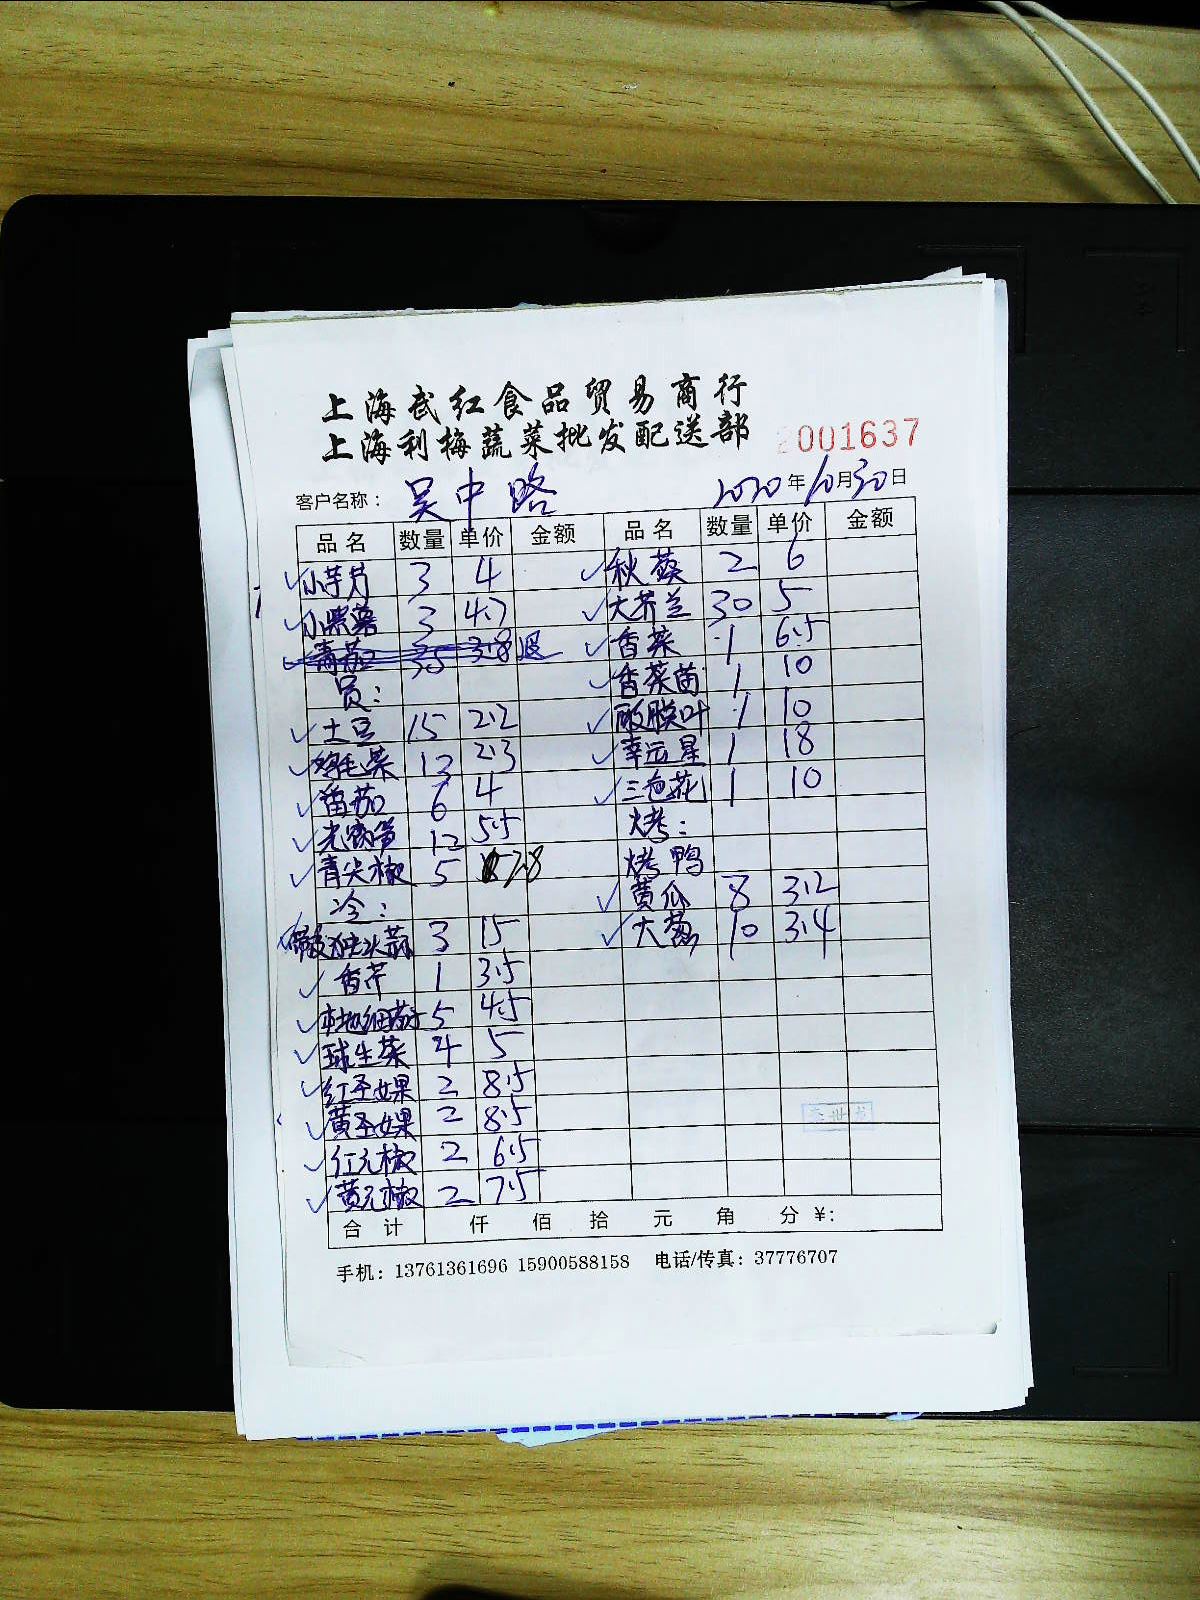 上海武红食品贸易商行
上海利梅蔬菜批发配送部
2001637
客户名称： 吴中路 2020年10月30日
品名 数量 单价 金额 品名 数量 单价 金额
小芋艿 3 4 秋葵 2 6
小紫薯 3 4.7 大芥兰 30 5
青茄 35 3.8 退 香菜 1 6.5
员： 香菜苗 1 10
土豆 15 2.2 酸膜叶 1 10
鸡毛菜 12 2.3 幸运星 1 18
番茄 6 4 三色花 1 10
光莴笋 12 5.5 烤：
青尖椒 5 7.8 烤鸭
冷： 黄瓜 8 3.2
带皮独头蒜 3 15 大葱 10 3.4
香芹 1 3.5
本地细茄子 5 4.5
球生菜 4 5
红圣女果 2 8.5
黄圣女果 2 8.5
红元椒 2 6.5
黄元椒 2 7.5
合计 仟 佰 拾 元 角 分 ¥：
手机：13761361696 15900588158 电话/传真：37776707